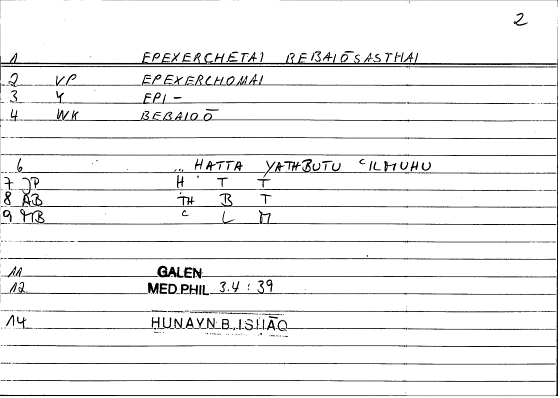 2
1 EPEXERCHETAI BEBAIŌSASTHAI
2 VP EPEXERCHOMAI
3 Y EPI-
4 WK BEBAIOŌ
6 ... HATTA YATHBUTU ʿILMUHU
7 JP H T T
8 AB TH B T
9 MB ʿ L M
11 GALEN
12 MED.PHIL 3.4 : 39
14 HUNAYN B. ISHĀQ